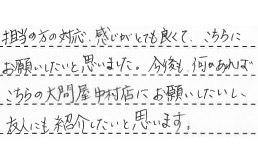 担当の方の対応、感じがとても良くて、こちらに
お願いしたいと思いました。今後も、何かあれば
こちらの大問屋中村店にお願いしたいし、
友人にも紹介したいと思います。